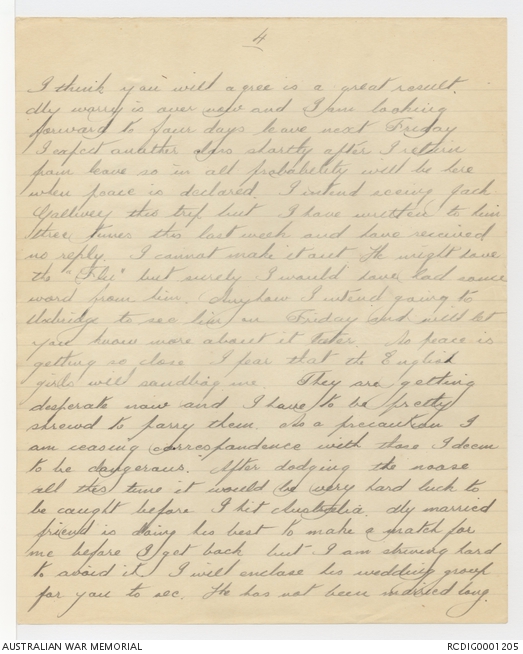 4
I think you will agree is a great result.
My worry is over now and I am looking
forward to four days leave next Friday
I expect another class shortly after I return
from leave so in all probability will be here
when peace is declared. I intend seeing Jack
Gallivey this trip but I have written to him
three times this last week and have received
no reply. I cannot make it out He might have
the "Flu" but surely I would have had some
word from him. Anyhow I intend going to
Uxbridge to see him on Friday and will let
you know more about it later. As peace is
getting so close I fear that the English
girls will sandbag me. They are getting
desperate now and I have to be pretty
shrewd to parry them. As a precaution I
am ceasing correspondence with those I deem
to be dangerous. After dodging the noose
all this time it would be very hard luck to
be caught before I hit Australia. My married
friend is doing his best to make a match for
me before I get back but I am striving hard
to avoid it. I will enclose his wedding group
for you to see. He has not been married long.
AUSTRALIAN WAR MEMORIAL
RCDIG0001205